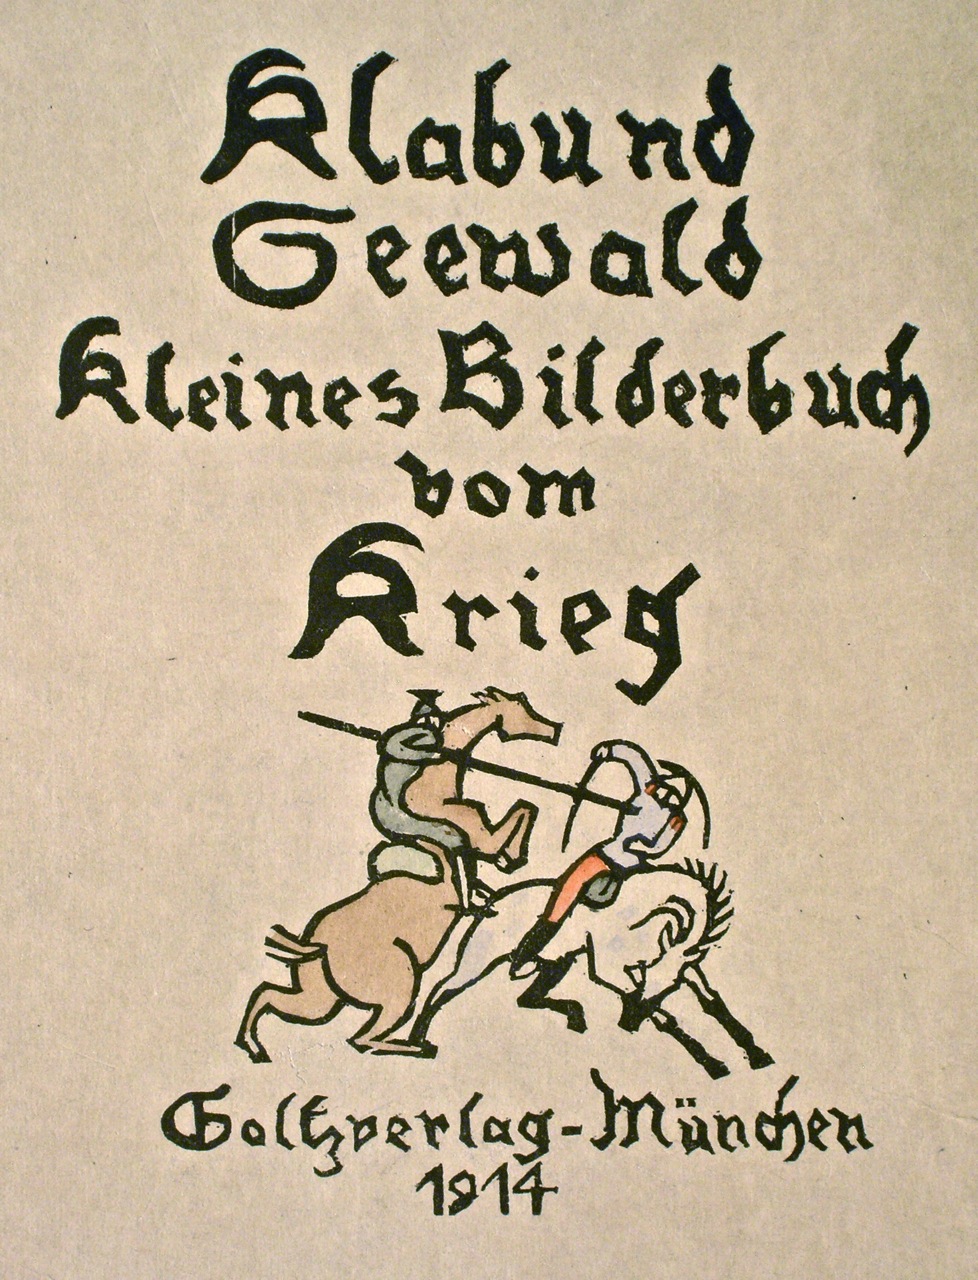 Klabund
Seewald
Kleines Bilderbuch
vom
Krieg
Goltzverlag-München
1914